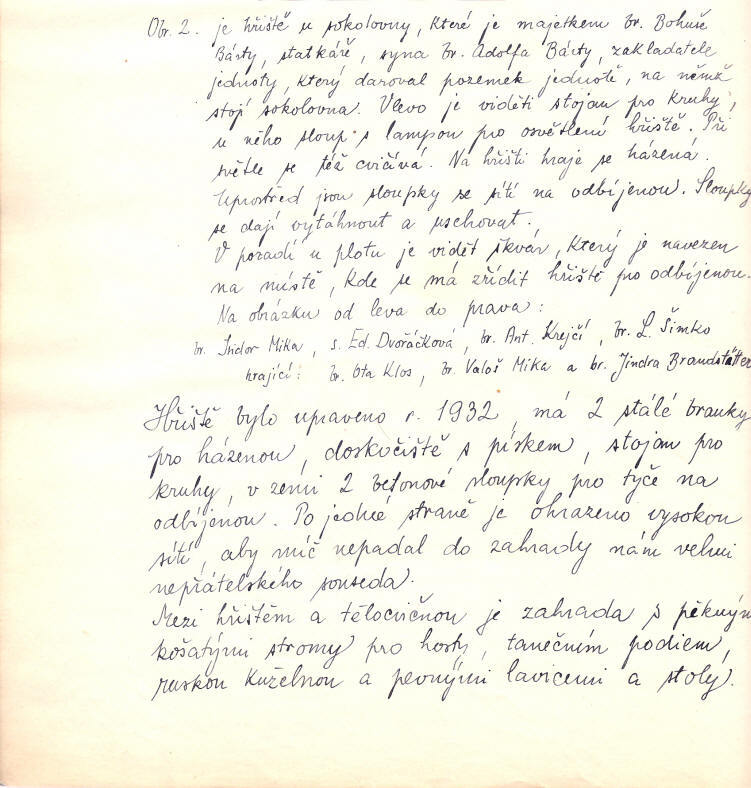 Obr. 2. je hřiště u sokolovny, které je majetkem br. Bohuše
Bárty, statkáře, syna br. Adolfa Bárty, zakladatele
jednoty, který daroval pozemek jednotě, na němž
stojí sokolovna. Vlevo je viděti stojan pro kruhy,
u něho sloup s lampou pro osvětlení hřiště. Při
světle se též cvičívá. Na hřišti hraje se házená.
Uprostřed jsou sloupky se sítí na odbíjenou. Sloupky
se dají vytáhnout a uschovat.
V pozadí u plotu je vidět škvár, který je navezen
na místě, kde se má zřídit hřiště pro odbíjenou.
Na obrázku od leva do prava:
br. Isidor Mika, s. Ed. Dvořáčková, br. Ant. Krejčí, br. L. Šimko
hrající: br. Ota Klos, br. Valoš Mika a br. Jindra Brandstätter
Hřiště bylo upraveno r. 1932, má 2 stálé branky
pro házenou, doskočiště s pískem, stojan pro
kruhy, v zemi 2 betonové sloupky pro tyče na
odbíjenou. Po jedné straně je ohrazeno vysokou
sítí, aby míč nepadal do zahrady nám velmi
nepřátelského souseda.
Mezi hřištěm a tělocvičnou je zahrada s pěkným
košatými stromy pro hosty, tanečním podiem,
ruskou kuželnou a pevnými lavicemi a stoly.